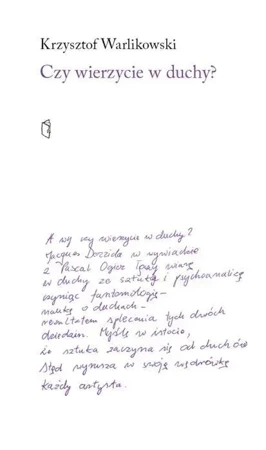 Krzysztof Warlikowski
Czy wierzycie w duchy?
A wy czy wierzycie w duchy?
Jacques Derrida w wywiadzie
z Pascal Ogier łączy wiarę
w duchy ze sztuką i psychoanalizą
czyniąc fantomologię –
naukę o duchach –
rezultatem splecenia tych dwóch
dziedzin. Myślę w istocie,
że sztuka zaczyna się od duchów
stąd wyrusza w swoją wędrówkę
każdy artysta.